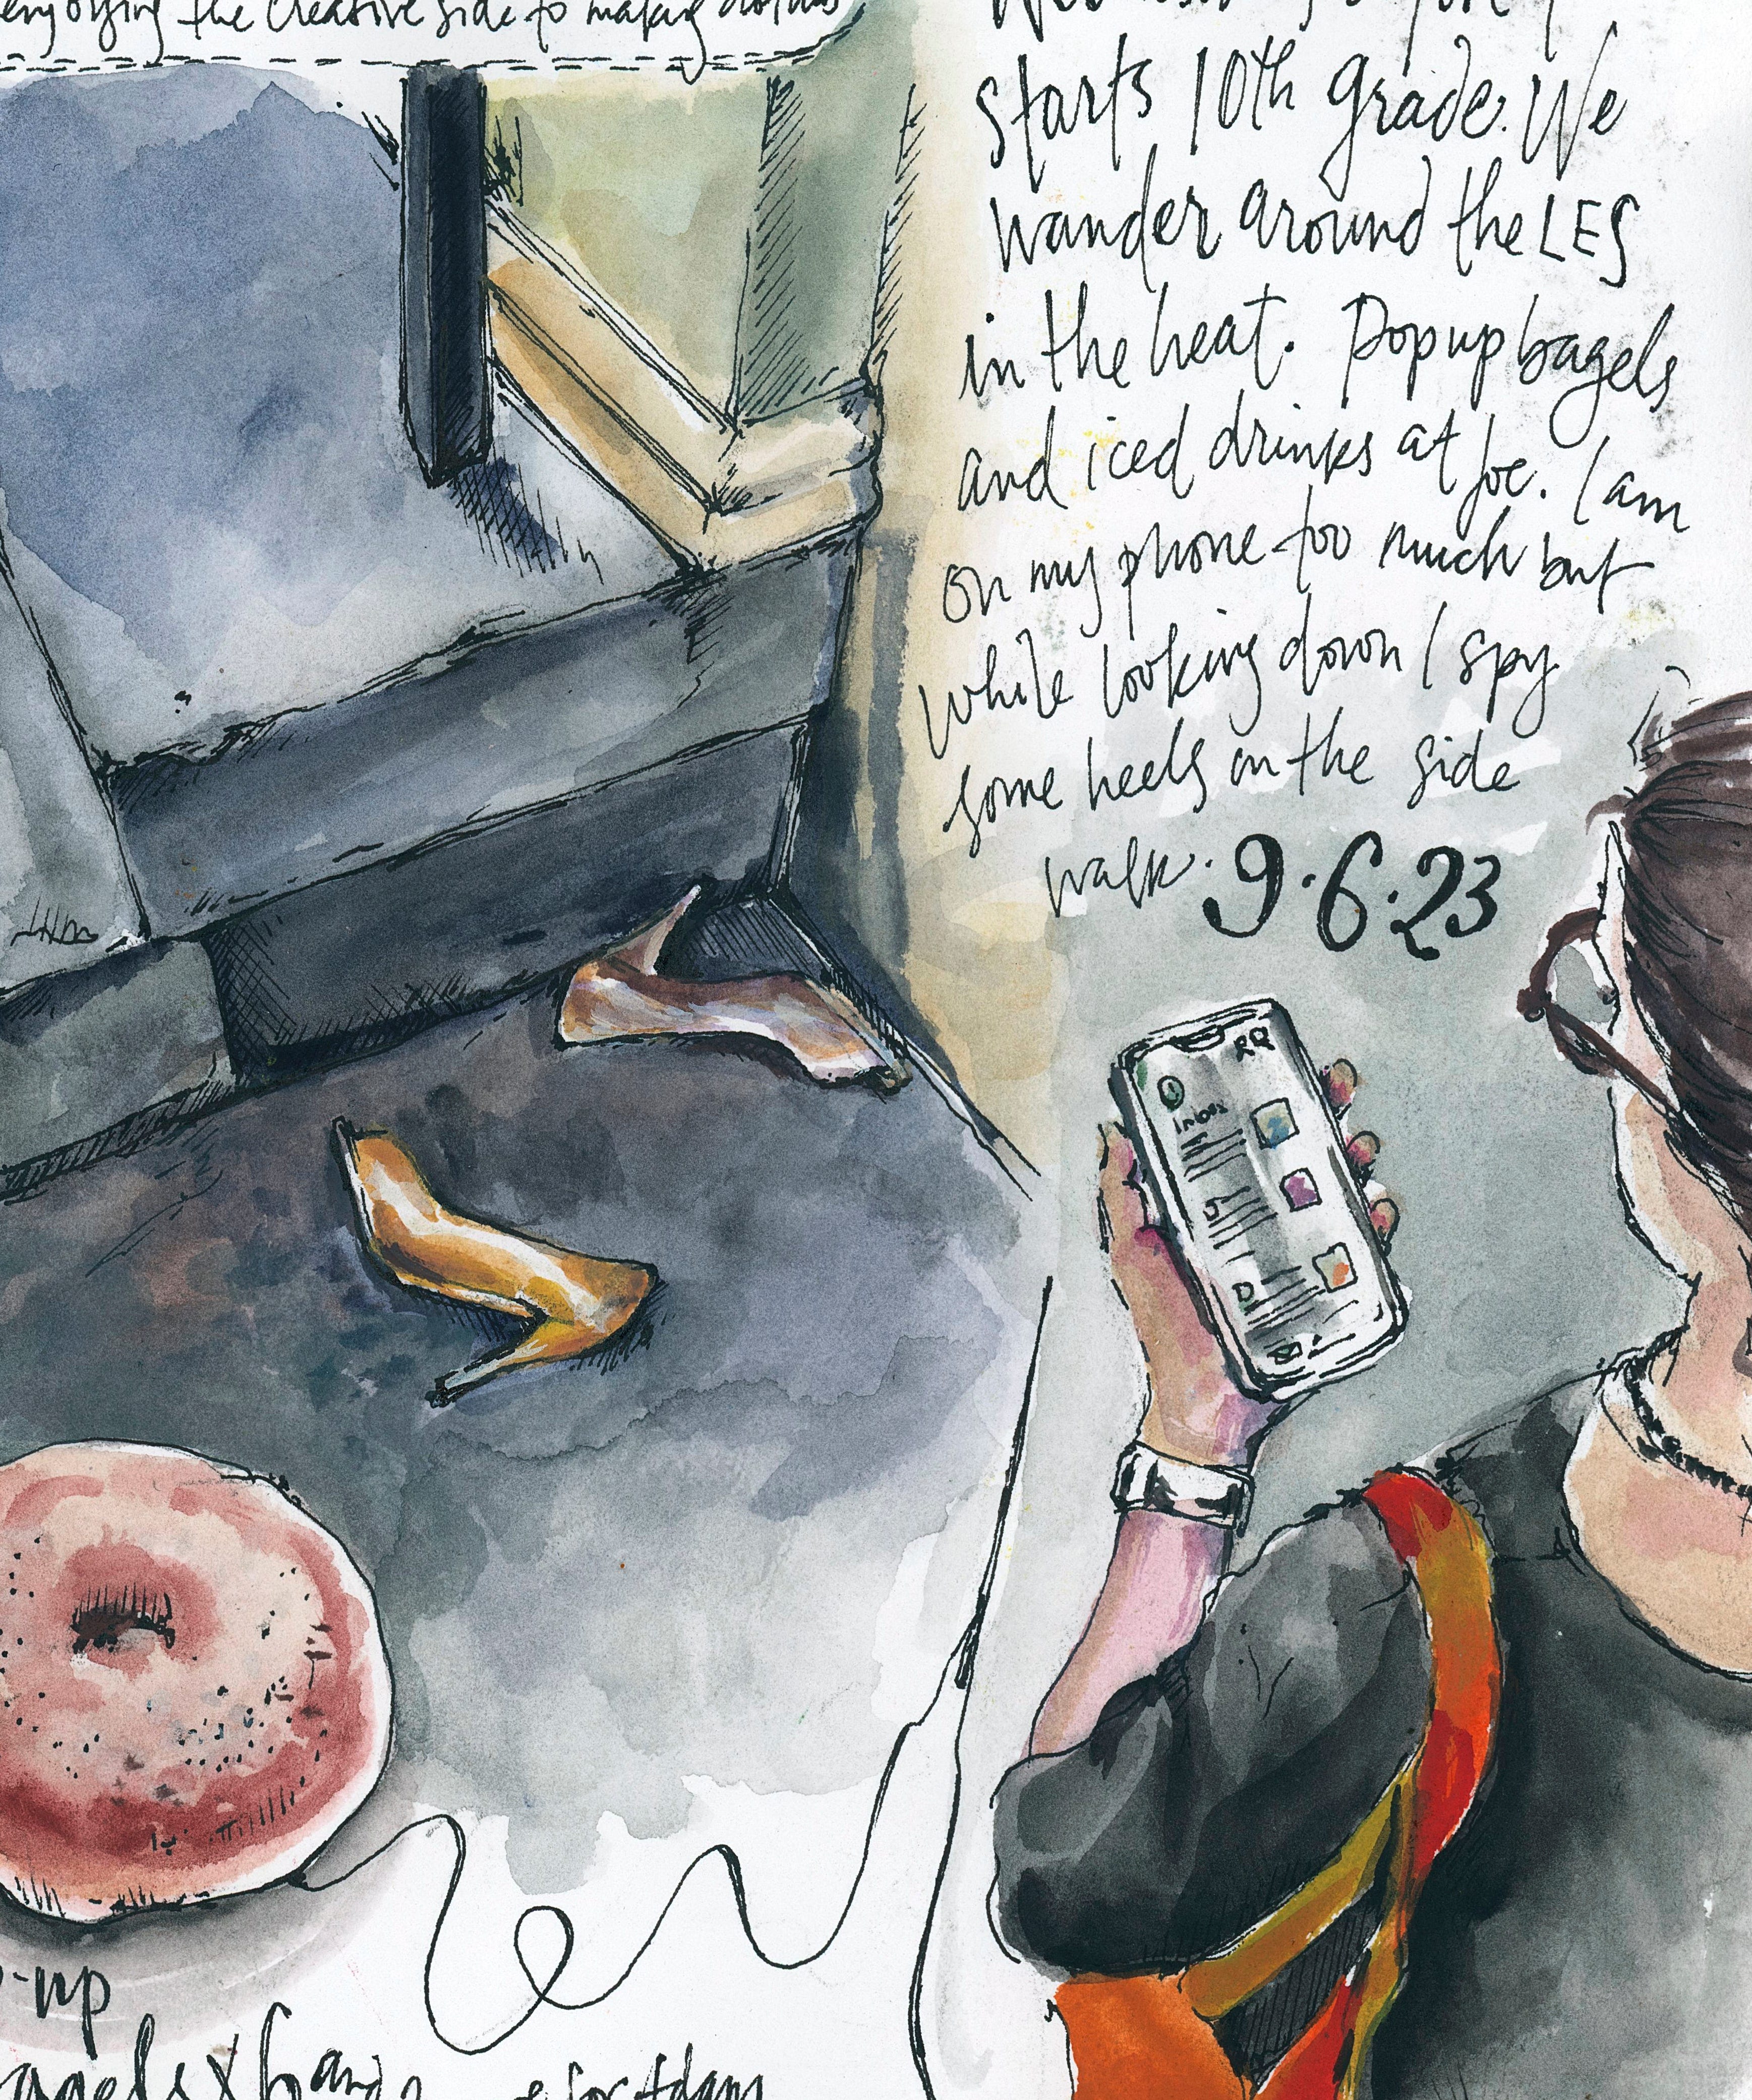 enjoying the creative side to making
starts 10th grade. We
wander around the LES
in the heat. Popup bagels
and iced drinks at Joe. I am
on my phone too much but
while looking down I spy
some heels on the side
walk. 9.6.23
Inbox
-up